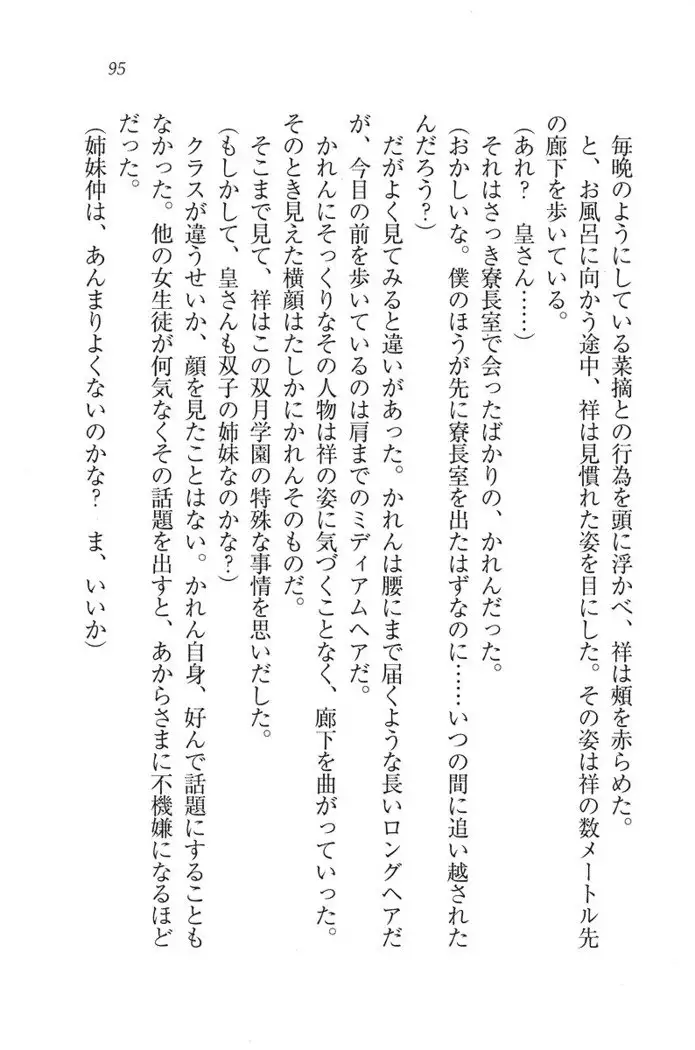 95
毎晩のようにしている菜摘との行為を頭に浮かべ、祥は頬を赤らめた。
と、お風呂に向かう途中、祥は見慣れた姿を目にした。その姿は祥の数メートル先
の廊下を歩いている。
(あれ?　皇さん……)
それはさっき寮長室で会ったばかりの、かれんだった。
(おかしいな。僕のほうが先に寮長室を出たはずなのに……いつの間に追い越された
んだろう?)
だがよく見てみると違いがあった。かれんは腰にまで届くような長いロングヘアだ
が、今目の前を歩いているのは肩までのミディアムヘアだ。
かれんにそっくりなその人物は祥の姿に気づくことなく、廊下を曲がっていった。
そのとき見えた横顔はたしかにかれんそのものだ。
そこまで見て、祥はこの双月学園の特殊な事情を思いだした。
(もしかして、皇さんも双子の姉妹なのかな?)
クラスが違うせいか、顔を見たことはない。かれん自身、好んで話題にすることも
なかった。他の女生徒が何気なくその話題を出すと、あからさまに不機嫌になるほど
だった。
(姉妹仲は、あんまりよくないのかな?　ま、いいか)